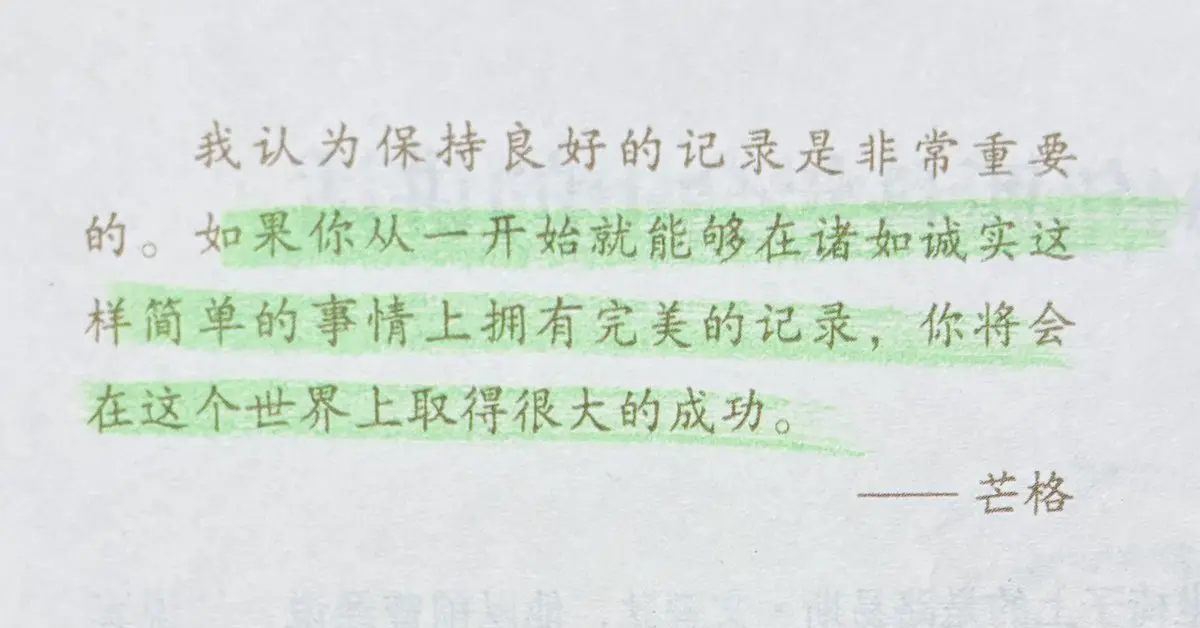 我认为保持良好的记录是非常重要
的。如果你从一开始就能够在诸如诚实这
样简单的事情上拥有完美的记录，你将会
在这个世界上取得很大的成功。
—— 芒格